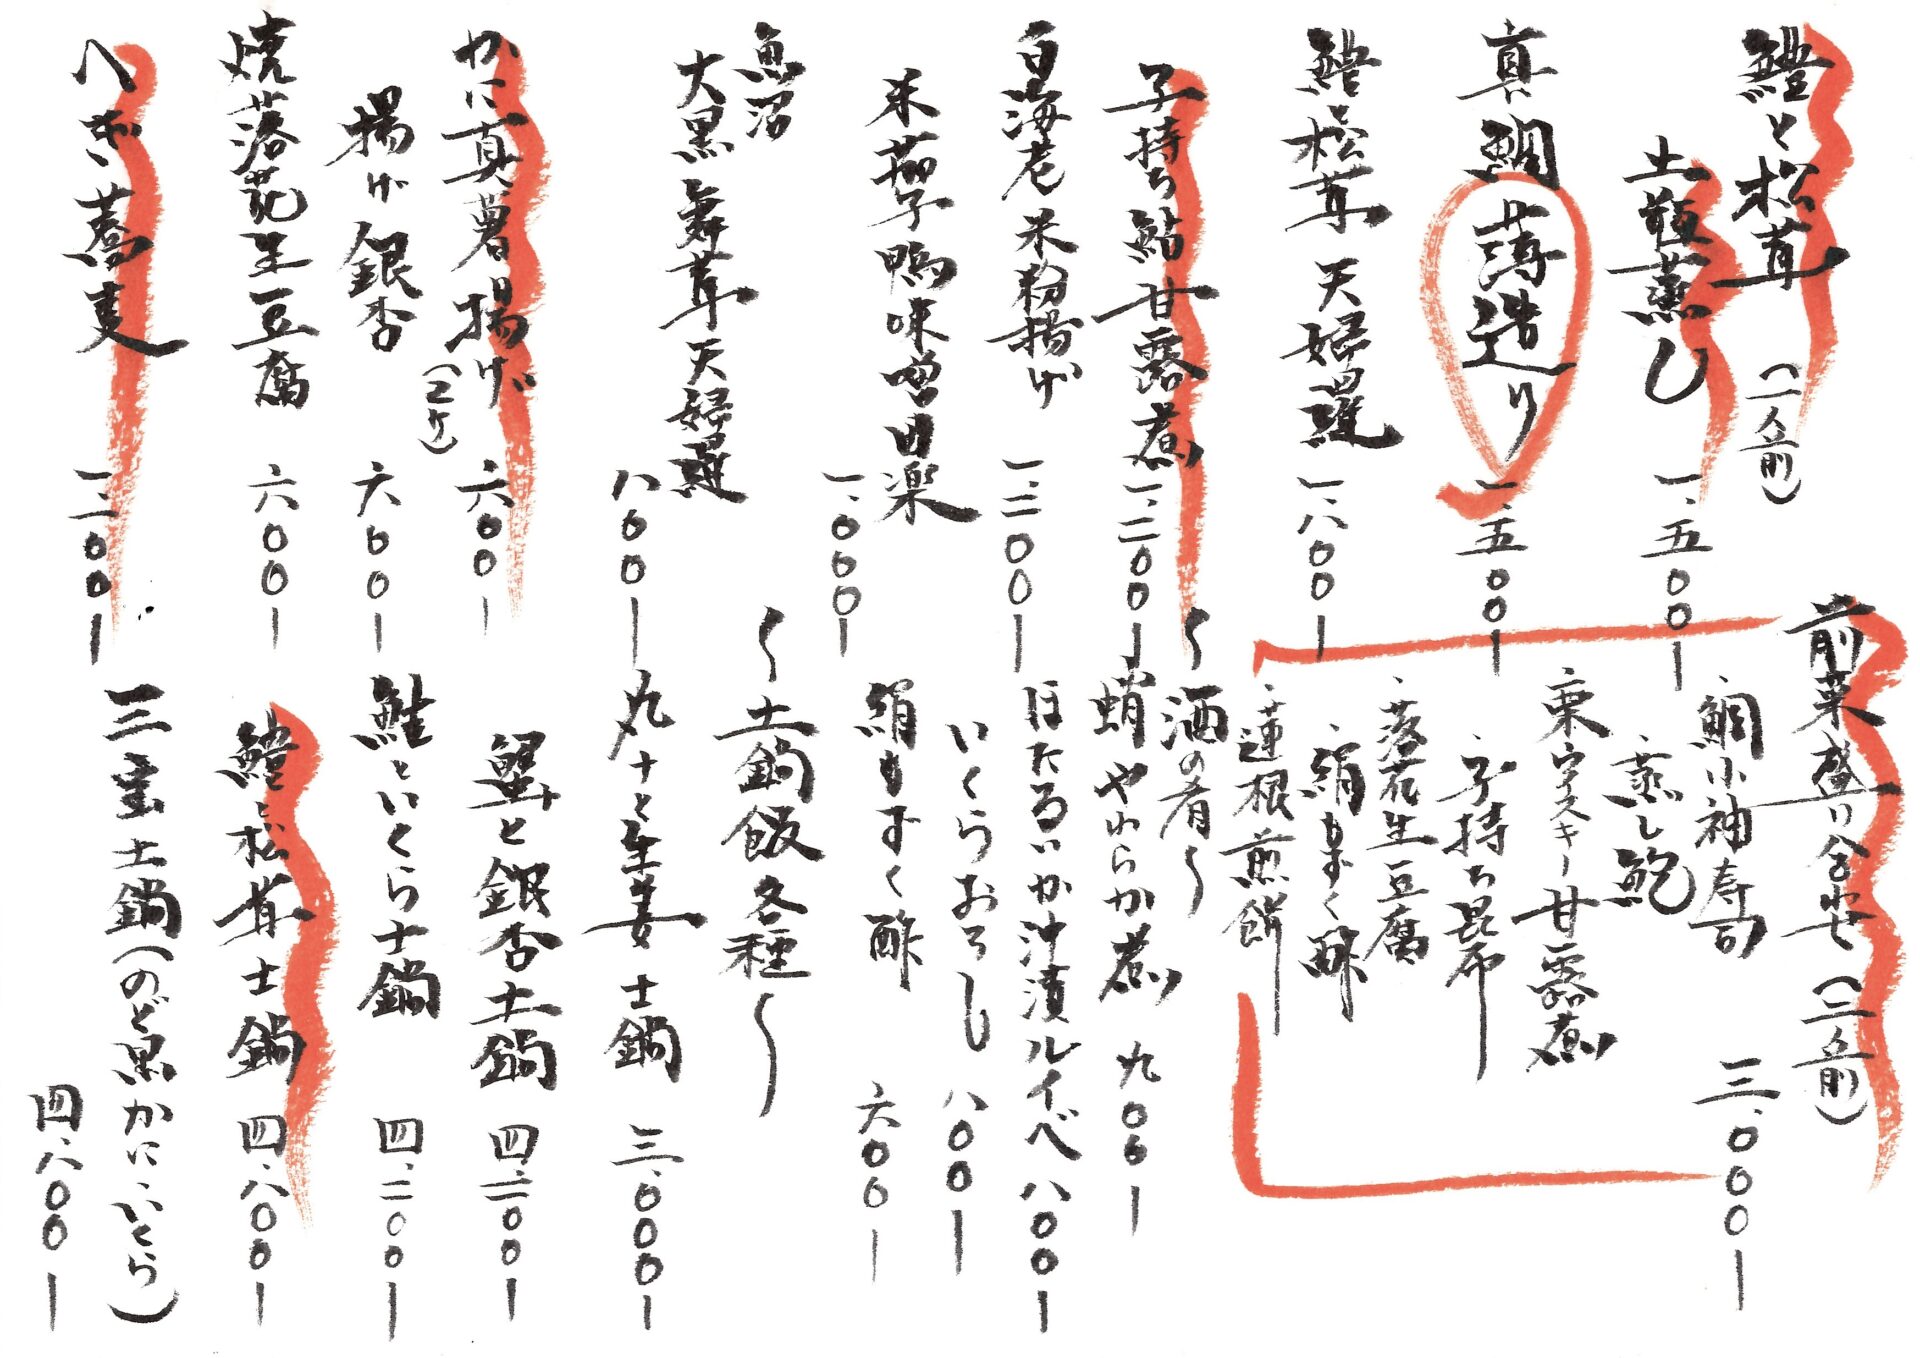 鱧と松茸(一人前)
土瓶蒸し 一、五〇〇-
真鯛薄造り 一、五〇〇-
鱧と松茸 天婦羅 一、八〇〇-
子持ち鮎甘露煮 一、二〇〇-
白海老米粉揚げ 一、二〇〇-
米茄子鴨味噌田楽 一、〇〇〇-
魚沼
大黒舞茸天婦羅 八〇〇-
かに真薯揚げ(2ケ) 六〇〇-
揚げ銀杏 六〇〇-
焼落花生豆腐 六〇〇-
へぎ蕎麦 一、二〇〇-
前菜盛り合わせ(二人前) 三、〇〇〇-
、鯛小袖寿司
、蒸し鮑
、栗ウイスキー甘露煮
、子持ち昆布
、落花生豆腐
、絹もずく酢
、蓮根煎餅
~酒の肴~
蛸やわらか煮 九〇〇-
ほたるいか沖漬ルイベ 八〇〇-
いくらおろし 八〇〇-
絹もずく酢 六〇〇-
~土鍋飯各種~
丸十と生姜土鍋 三、〇〇〇-
蟹と銀杏土鍋 四、二〇〇-
鮭といくら土鍋 四、二〇〇-
鱧と松茸土鍋 四、八〇〇-
三重土鍋(のど黒かに、いくら)
四、八〇〇-